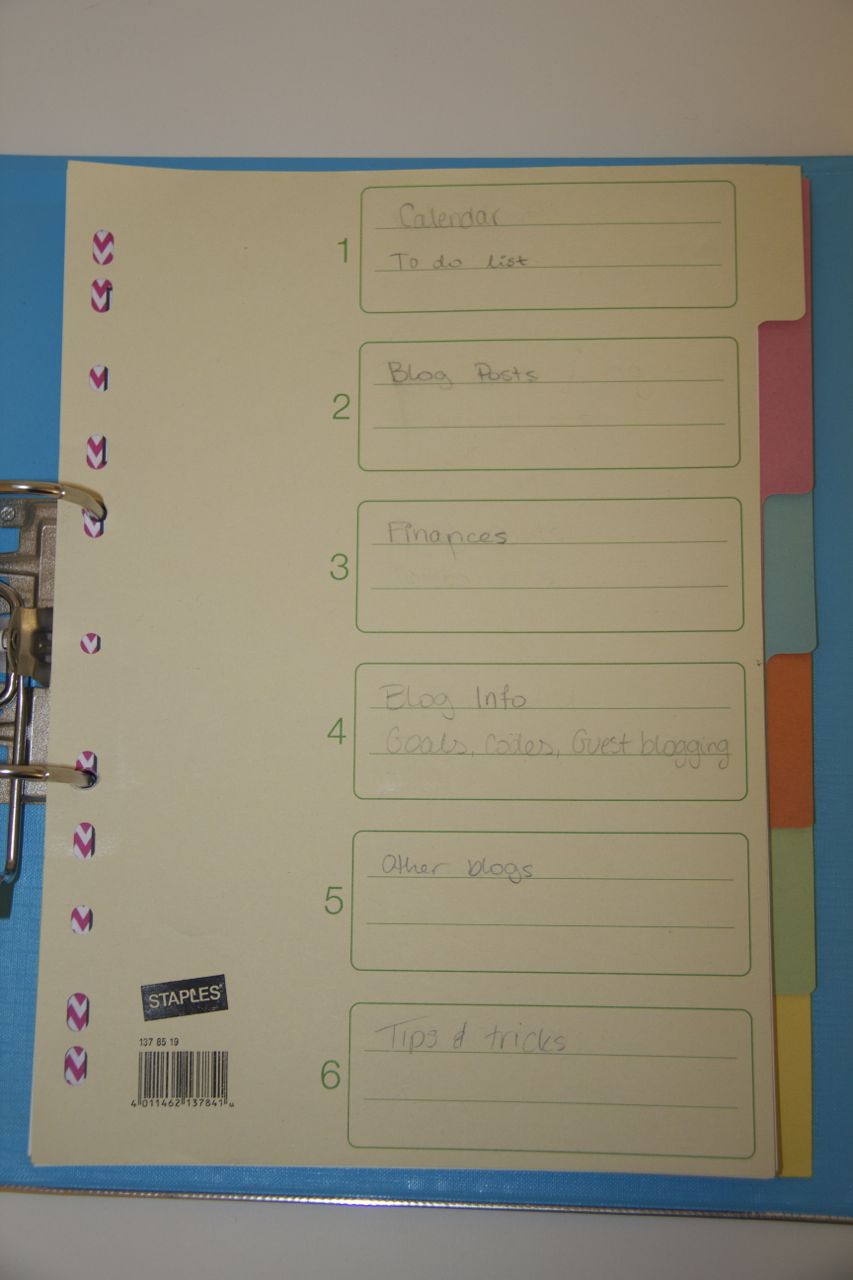 1
Calendar
To do list
2
Blog Posts
3
Finances
4
Blog Info
Goals, codes, Guest blogging
5
Other blogs
6
Tips & tricks
STAPLES
137 85 19
4 011462 137841